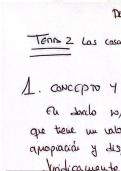 Tema 2 Las cosa
1. CONCEPTO Y
En
que tiene un
apropiación y dis
Jurídicamente